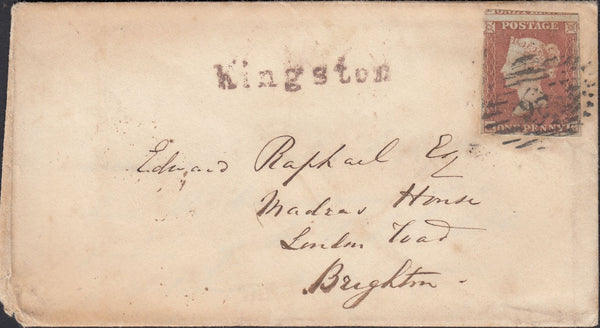 POSTAGE
Kingston
ONE PENNY
Edward Raphael Esq
Madras House
London Road
Brighton